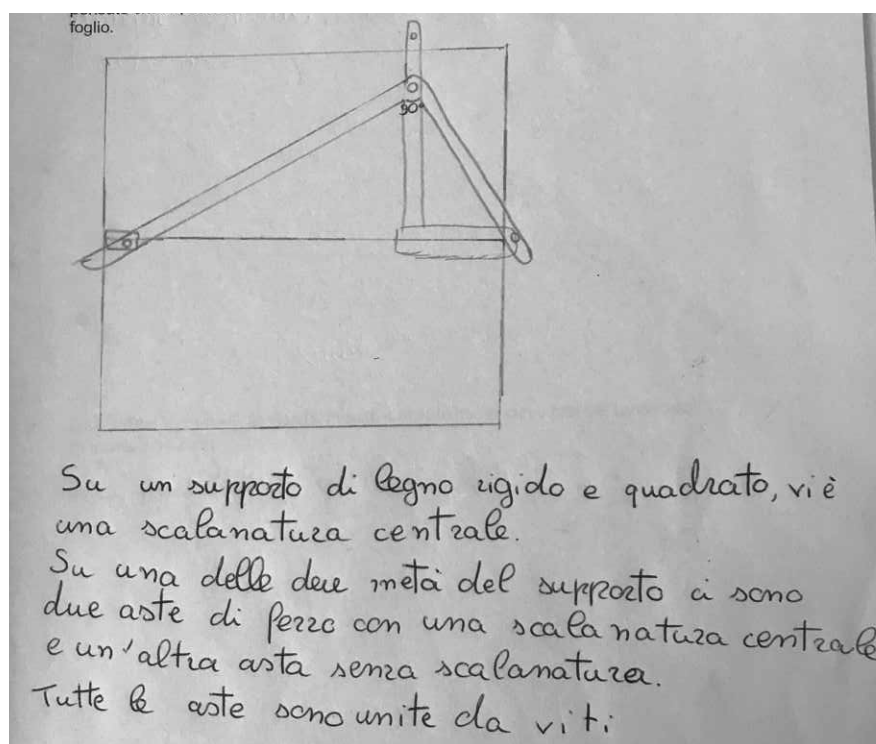 foglio.
90°
Su un supporto di legno rigido e quadrato, vi è
una scalanatura centrale.
Su una delle due metà del supporto ci sono
due aste di ferro con una scalanatura centrale
e un'altra asta senza scalanatura.
Tutte le aste sono unite da viti